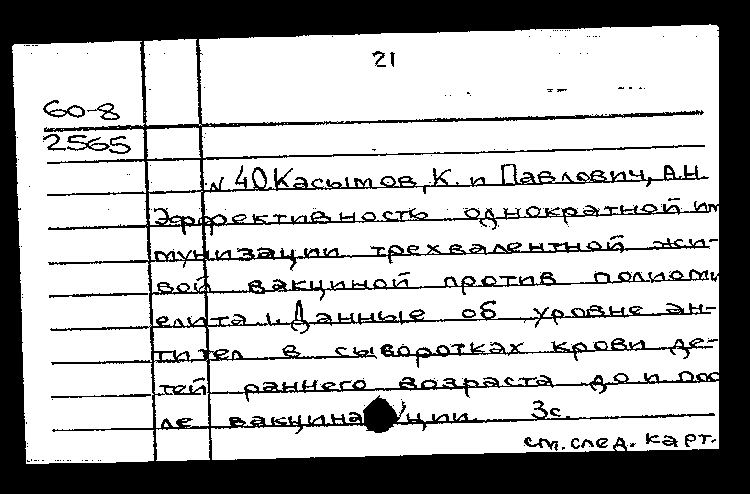 21
60-8
2565
N 40 Касымов, К. и Павлович, А.Н.
Эффективность однократной им
мунизации трехвалентной жи-
вой вакциной против полиоми
елита I. Данные об уровне ан-
тител в сыворотках крови де-
тей раннего возраста до и пос
ле вакцинации. 3с.
см. след. карт.